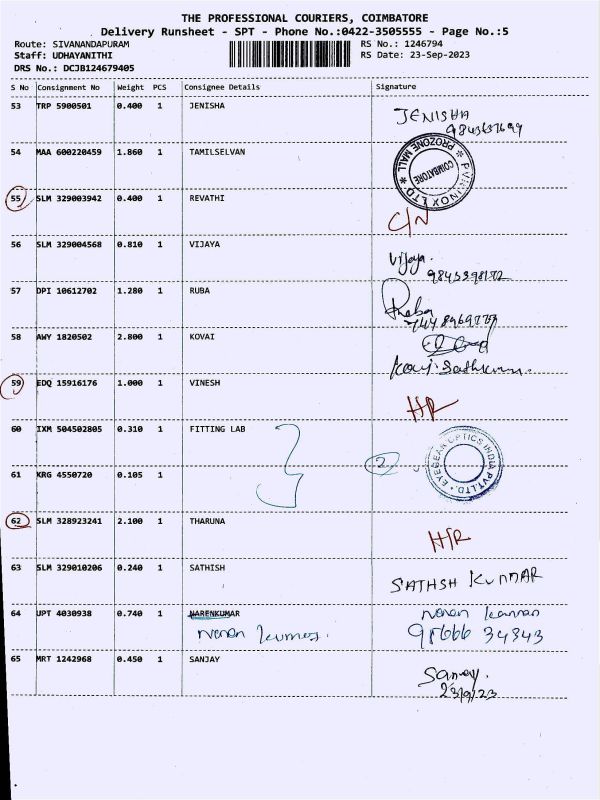 THE PROFESSIONAL COURIERS, COIMBATORE
Delivery Runsheet - SPT - Phone No.:0422-3505555 - Page No.:5
Route: SIVANANDAPURAM RS No.: 1246794
Staff: UDHAYANITHI RS Date: 23-Sep-2023
DRS No.: DCJB124679405
S No Consignment No Weight PCS Consignee Details Signature
53 TRP 5900501 0.400 1 JENISHA JENISHA
54 MAA 600220459 1.860 1 TAMILSELVAN PVR INOX LTD * PROZONE MALL * COIMBATORE
55 SLM 329003942 0.400 1 REVATHI C/N
56 SLM 329004568 0.810 1 VIJAYA Vijaya.
57 DPI 10612702 1.280 1 RUBA
58 AWY 1820502 2.800 1 KOVAI
59 EDQ 15916176 1.000 1 VINESH
60 IXM 504502805 0.310 1 FITTING LAB 2 EYEGEAR OPTICS INDIA PVT.LTD.
61 KRG 4550720 0.105 1
62 SLM 328923241 2.100 1 THARUNA
63 SLM 329010206 0.240 1 SATHISH SATHSH KUMAR
64 UPT 4030938 0.740 1 NARENKUMAR
65 MRT 1242968 0.450 1 SANJAY Sanjay.
23/9/23